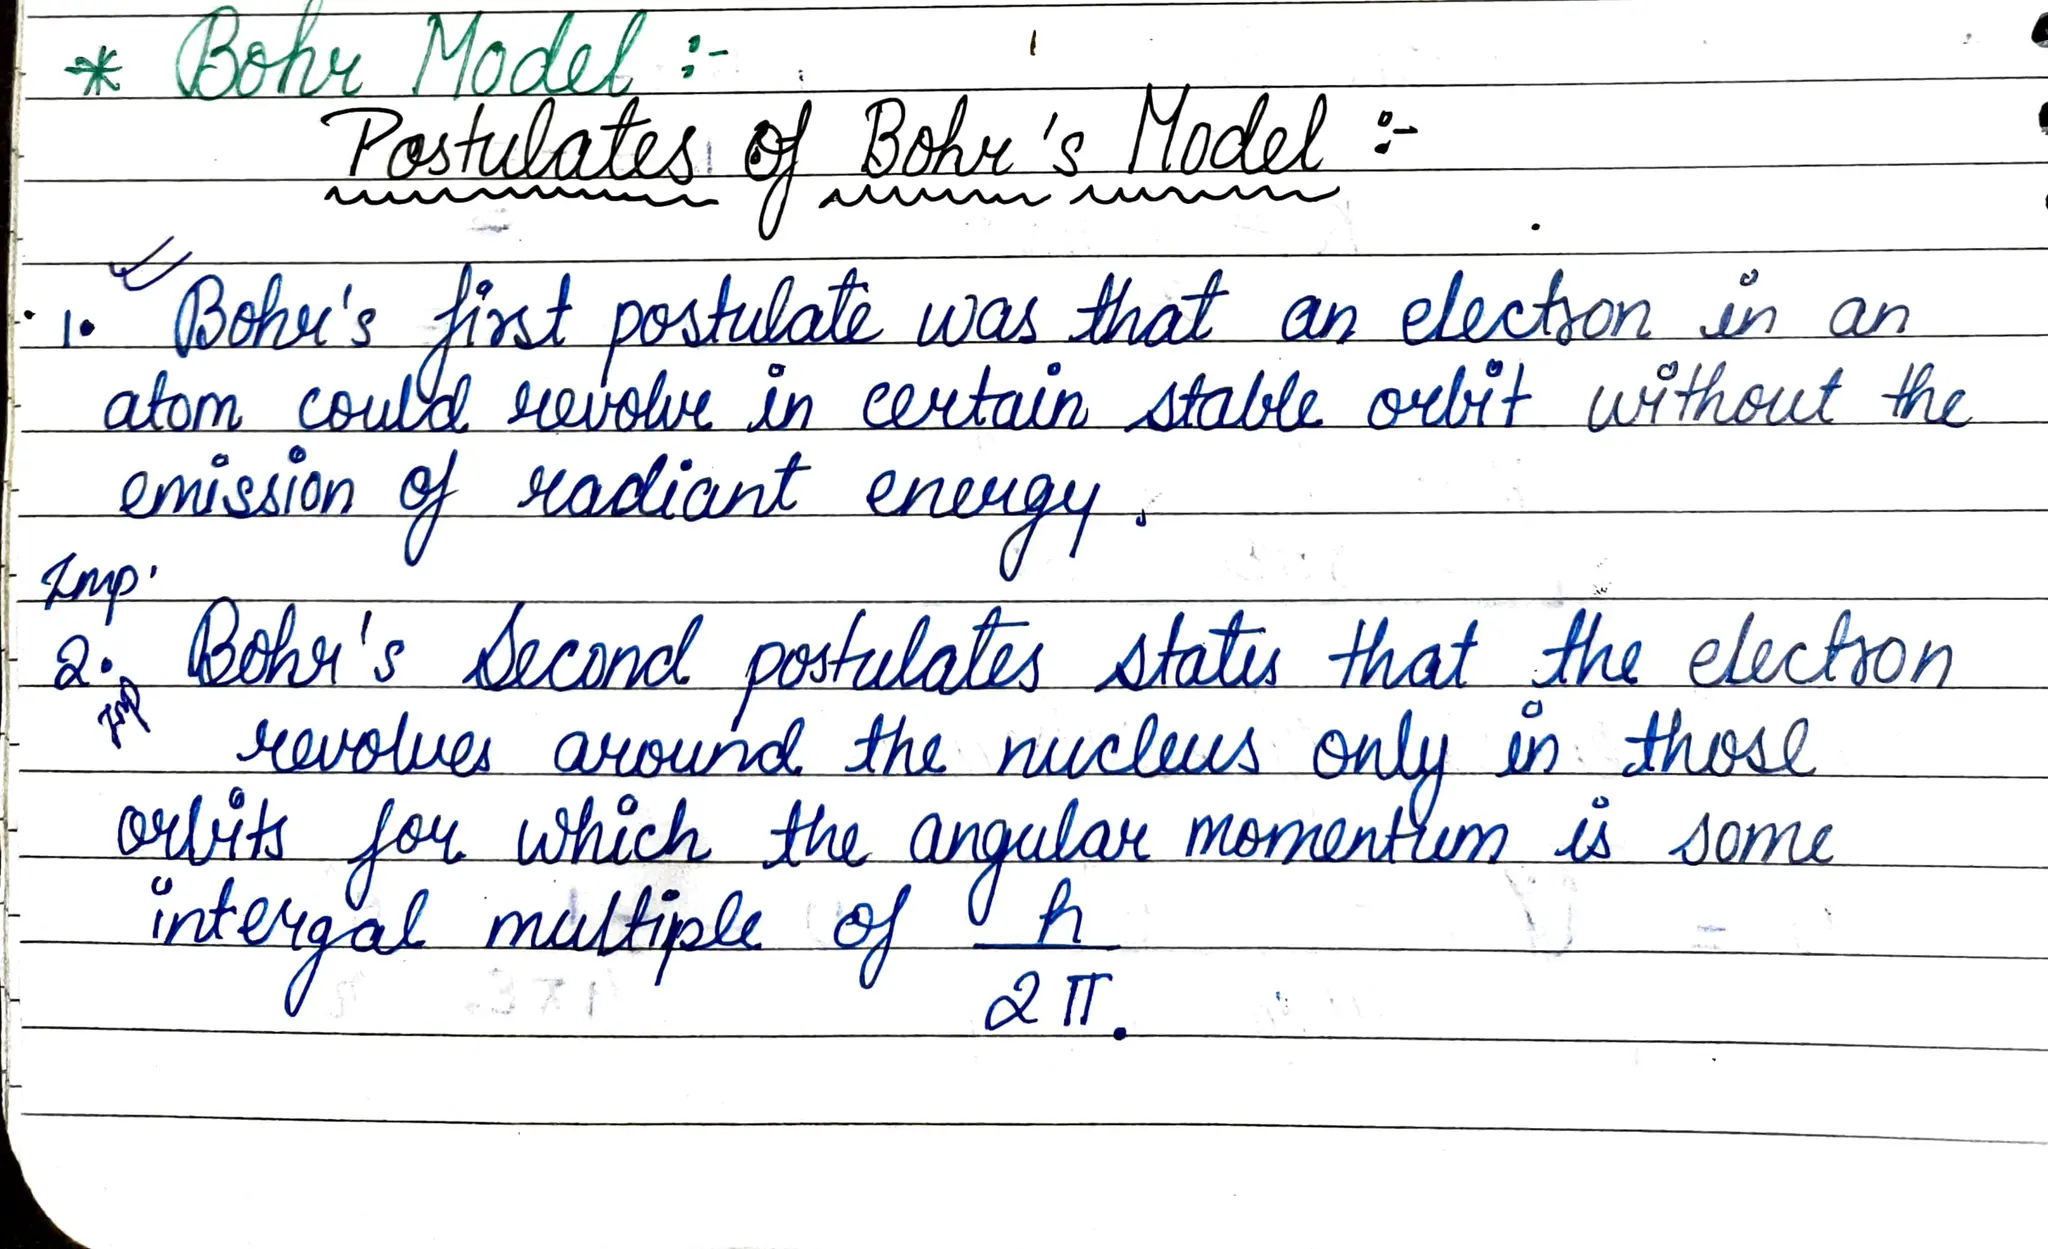 * Bohr Model :-
Postulates of Bohr's Model :-
1. Bohr's first postulate was that an electron in an
atom could revolve in certain stable orbit without the
emission of radiant energy.
Imp.
2. Bohr's Second postulates states that the electron
Imp
revolves around the nucleus only in those
orbits for which the angular momentum is some
intergal multiple of h
2π.